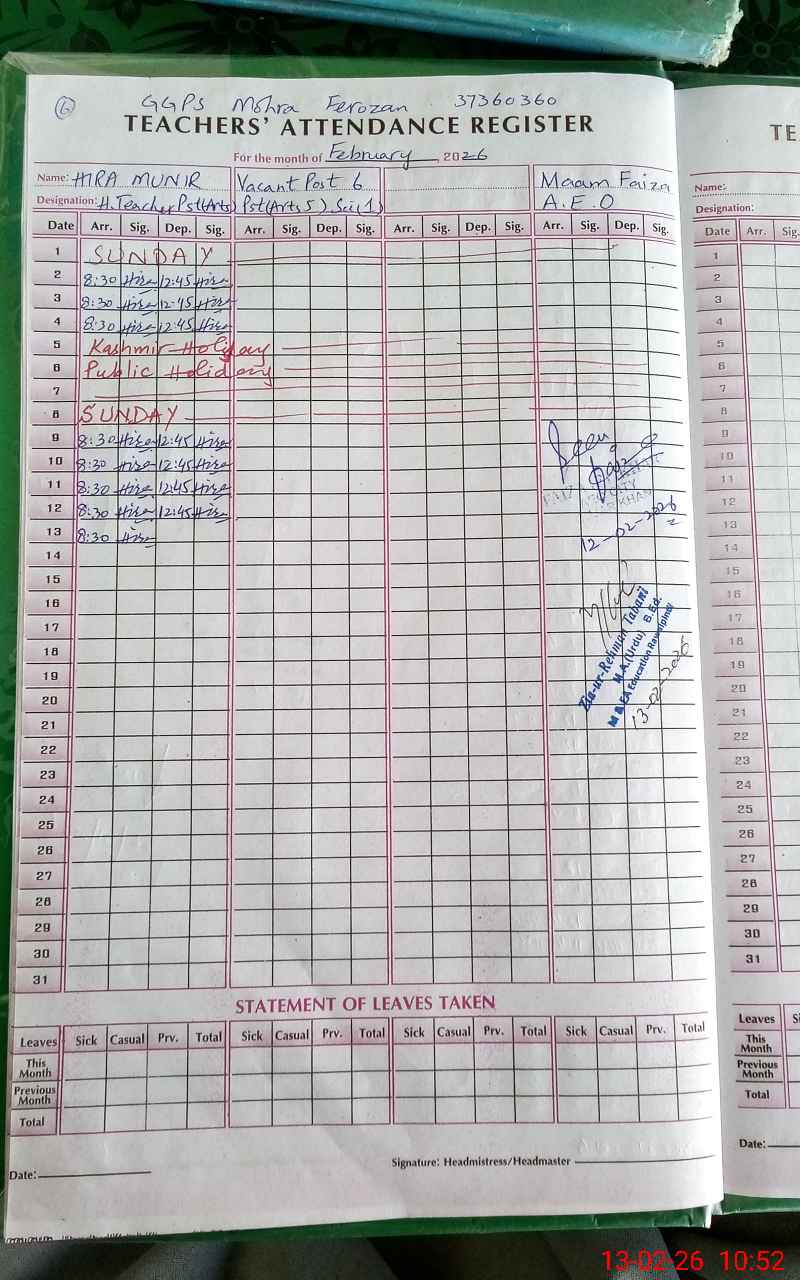 6 GGPS Mohra Ferozan 37360360
TEACHERS' ATTENDANCE REGISTER
For the month of February, 2026
Name: HIRA MUNIR Vacant Post 6 Maam Faiza
Designation: H.Teacher Pst(Arts) Pst(Arts 5), Sci(1) A.E.O
Date Arr. Sig. Dep. Sig. Arr. Sig. Dep. Sig. Arr. Sig. Dep. Sig. Arr. Sig. Dep. Sig.
1 SUNDAY
2 8:30 Hira 12:45 Hira
3 8:30 Hira 12:45 Hira
4 8:30 Hira 12:45 Hira
5 Kashmir Holiday
6 Public Holiday
7
8 SUNDAY
9 8:30 Hira 12:45 Hira
10 8:30 Hira 12:45 Hira
11 8:30 Hira 12:45 Hira
12 8:30 Hira 12:45 Hira
13 8:30 Hira
14
15
16
17
18
19
20
21
22
23
24
25
26
27
28
29
30
31
Seen
12-02-2026
Zia-ur-Rehman Tabani
M.A.(Urdu), B.Ed.
M&EA Education Rawalpindi
13-02-2026
STATEMENT OF LEAVES TAKEN
Leaves Sick Casual Prv. Total Sick Casual Prv. Total Sick Casual Prv. Total Sick Casual Prv. Total
This Month
Previous Month
Total
Date: Signature: Headmistress/Headmaster
TE
Name:
Designation:
Date Arr. Sig.
1
2
3
4
5
6
7
8
9
10
11
12
13
14
15
16
17
18
19
20
21
22
23
24
25
26
27
28
29
30
31
Leaves
This Month
Previous Month
Total
Date:
13-02-26 10:52